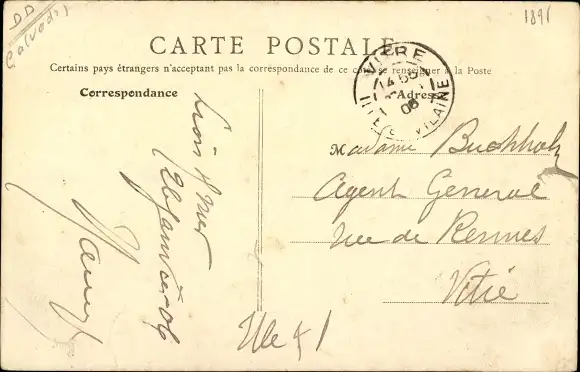 DD
Calvados
1891
CARTE POSTALE
Certains pays étrangers n'acceptant pas la correspondance de ce côté, se renseigner à la Poste
Correspondance
Adresse
VITRÉ
ILLE-&-VILAINE
06
Lion s/ mer
Madame Buchholz
Agent General
rue de Rennes
Vitré
Ille & V